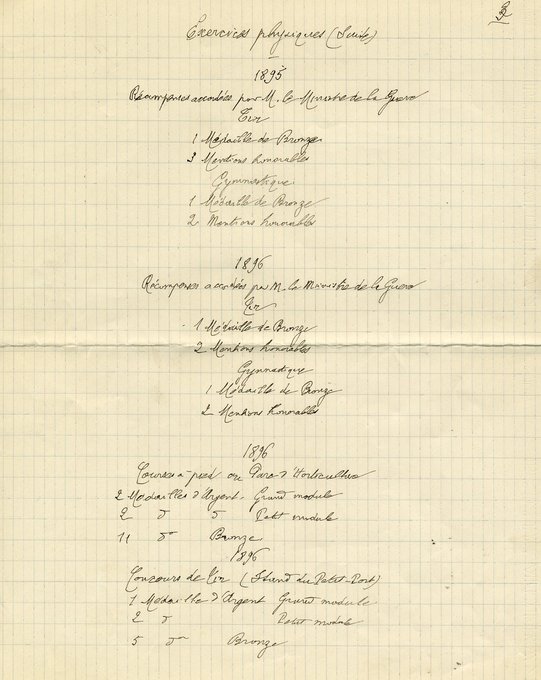 3
Exercices physiques (Suite)
1895
Récompenses accordées par M. le Ministre de la Guerre
Tir
1 Médaille de Bronze
3 Mentions honorables
Gymnastique
1 Médaille de Bronze
2 Mentions honorables
1896
Récompenses accordées par M. le Ministre de la Guerre
Tir
1 Médaille de Bronze
2 Mentions honorables
Gymnastique
1 Médaille de Bronze
2 Mentions honorables
1896
Courses à pied au Parc d'Horticulture
2 Médailles d'Argent Grand module
2 do do Petit module
11 do Bronze
1896
Concours de Tir (Stand du Petit-Port)
1 Médaille d'Argent Grand module
2 do Petit module
5 do Bronze